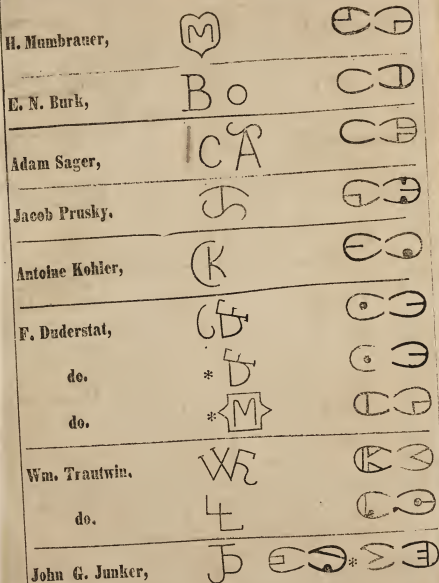 H. Mumbrauer, M
E. N. Burk, B o
Adam Sager, C A
Jacob Prusky.
Antoine Kohler, CK
F. Duderstat,
do. *
do. * M
Wm. Trautwin.
do.
John G. Junker, *